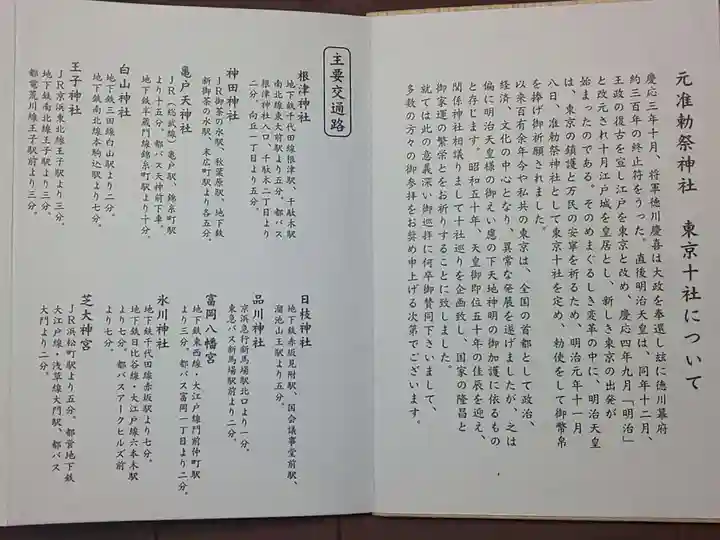 元准勅祭神社　東京十社について
慶応三年十月、将軍徳川慶喜は大政を奉還し玆に徳川幕府
約三百年の終止符をうった。直後明治天皇は、同年十二月、
王政の復古を宣し江戸を東京と改め、慶応四年九月「明治」
と改元され十月江戸城を皇居とし、新しき東京の出発が
始まったのである。そのめまぐるしき変革の中に、明治天皇
は、東京の鎮護と万民の安寧を祈るため、明治元年十一月
八日、准勅祭神社として東京十社を定め、勅使をして御幣帛
を捧げ御祈願されました。
以来百有余年今や私共の東京は、全国の首都として政治、
経済、文化の中心となり、異常な発展を遂げましたが、之は
偏に明治天皇様の御えい慮の下天地神明の御加護に依るもの
と存じます。昭和五十年、天皇御即位五十年の佳辰を迎え、
関係神社相議りまして十社巡りを企画致し、国家の隆昌と
御家運の繁栄とをお祈りすることに致しました。
就ては此の意義深い御巡拝に何卒御賛同下さいまして、
多数の方々の御参拝をお奨め申上げる次第でございます。
主要交通路
根津神社
地下鉄千代田線根津駅、千駄木駅
南北線東大前駅より五分、都バス
根津神社入口、千駄木二丁目より
二分。向丘一丁目より五分。
神田神社
ＪＲ御茶の水駅、秋葉原駅、地下鉄
新御茶の水駅、末広町駅より各五分。
亀戸天神社
ＪＲ（総武線）亀戸駅、錦糸町駅
より十五分。都バス天神前下車。
地下鉄半蔵門線錦糸町駅より十分。
白山神社
地下鉄三田線白山駅より二分。
地下鉄南北線本駒込駅より七分。
王子神社
ＪＲ京浜東北線王子駅より三分。
地下鉄南北線王子駅より三分。
都電荒川線王子駅前より三分。
日枝神社
地下鉄赤坂見附駅、国会議事堂前駅、
溜池山王駅より五分。
品川神社
京浜急行新馬場駅北口より一分。
東急バス新馬場駅前より二分。
富岡八幡宮
地下鉄東西線・大江戸線門前仲町駅
より三分。都バス富岡一丁目より二分。
氷川神社
地下鉄千代田線赤坂駅より七分。
地下鉄日比谷線・大江戸線六本木駅
より七分。都バスアークヒルズ前
より七分。
芝大神宮
ＪＲ浜松町駅より五分。都営地下鉄
大江戸線・浅草線大門駅、都バス
大門より二分。